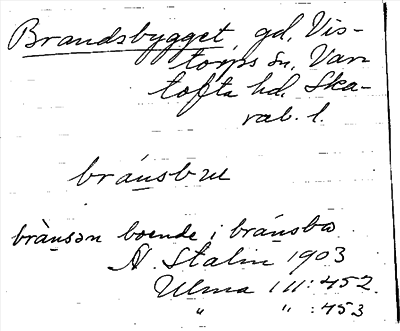 Brandsbygget gd, Vis-
torps sn, Var
tofta hd, Ska-
rab. l.
bránsbㅤ
brànsən boende i bránsbㅤ
A. Stalin 1903
Ulma 111:452.
" " :453